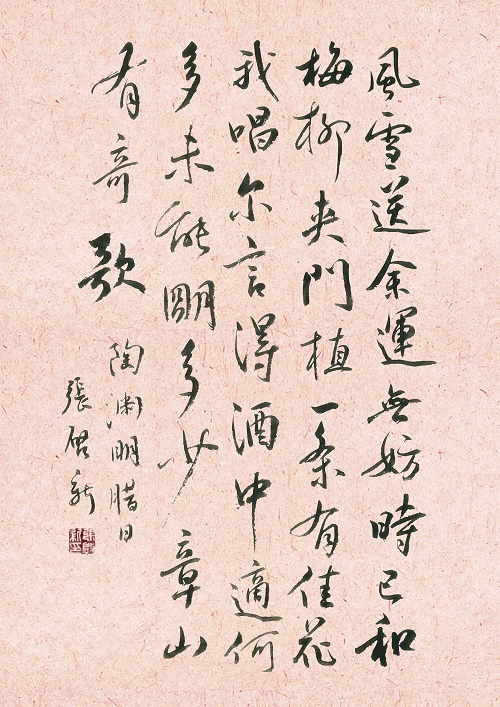 風雪送余運無妨時已和
梅柳夾門植一条有佳花
我唱尔言得酒中適何
多未能明多少章山
有奇歌
陶渊明腊日
張启新